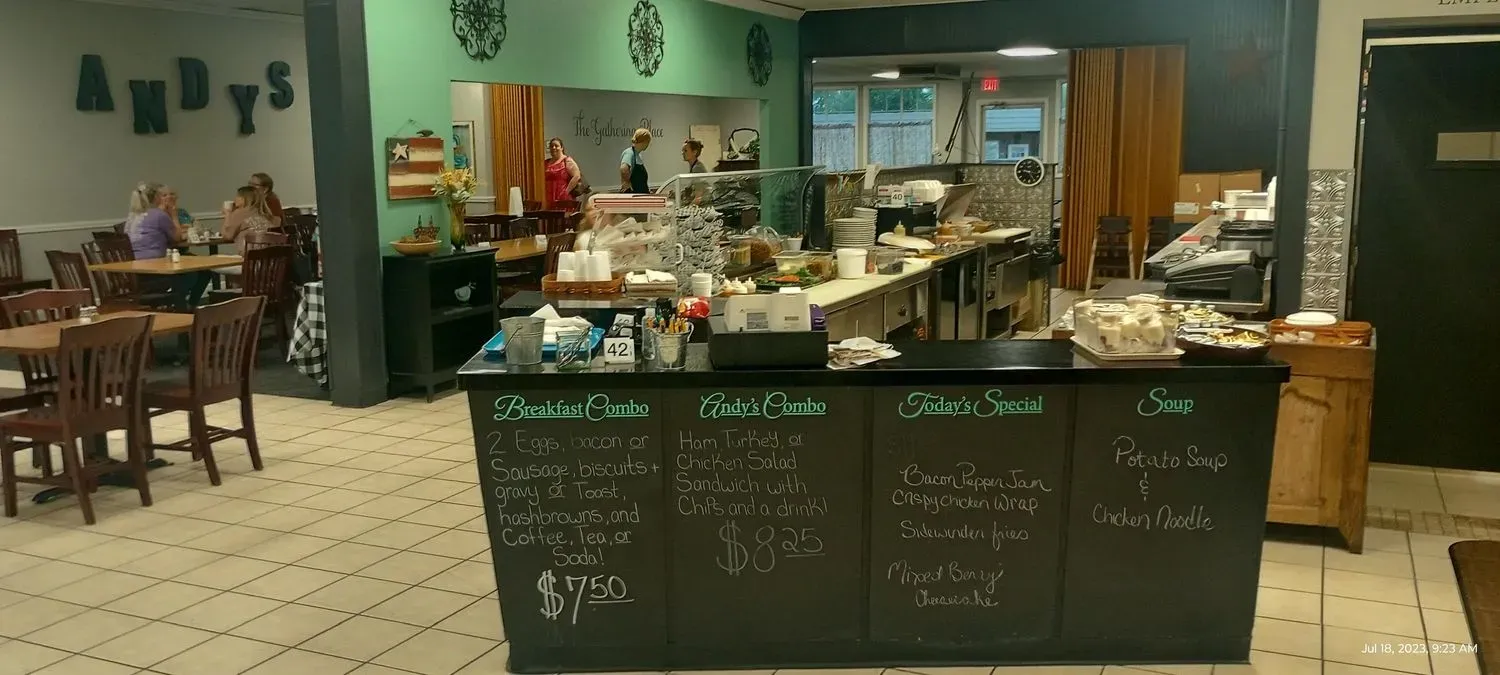 EMPL
ANDYS
The Gathering Place
EXIT
40
42
Breakfast Combo
2 Eggs, bacon or
Sausage, biscuits +
gravy or Toast,
hashbrowns, and
Coffee, Tea, or
Soda!
$7.50
Andy's Combo
Ham Turkey, or
Chicken Salad
Sandwich with
Chips and a drink!
$8.25
Today's Special
Bacon Pepper Jam
Crispy Chicken Wrap
Sidewinder fries
Mixed Berry
Cheesecake
Soup
Potato Soup
&
Chicken Noodle
Jul 18, 2023, 9:23 AM